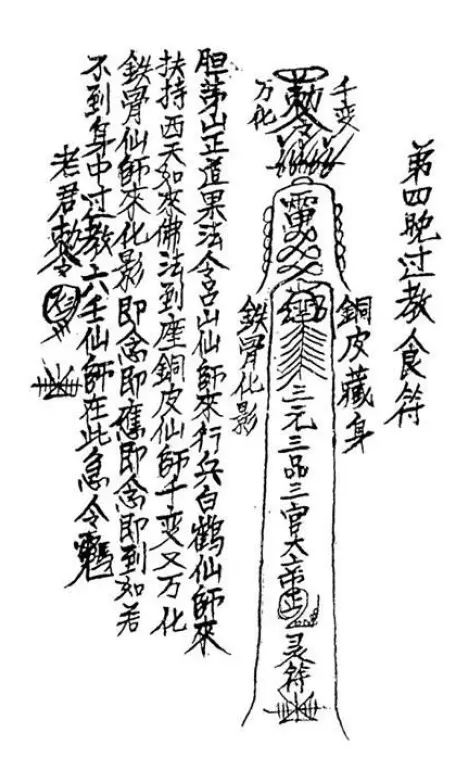 第四晚过教食符
千变
万化
敕令
雷
銅皮藏身
鉄骨化影
三元三品三官大帝
灵符
茅山正道果法令 山仙師來行兵白鶴仙師來
扶持西天如來佛法到座銅皮仙師千变又万化
鉄骨仙師來化影即念即應即念即到如若
不到身中过教六壬仙師在此急令
老君敕令